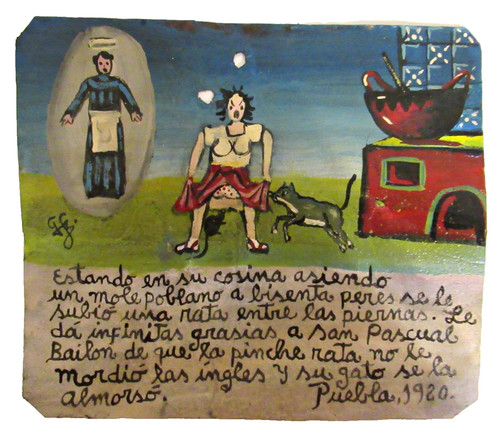 Estando en su cosina asiendo
un mole poblano a bisenta peres se le
subió una rata entre las piernas. Le
dá infinitas grasias a San Pascual
Bailon de que la pinche rata no le
mordió las ingles y su gato se la
almorsó. Puebla, 1920.